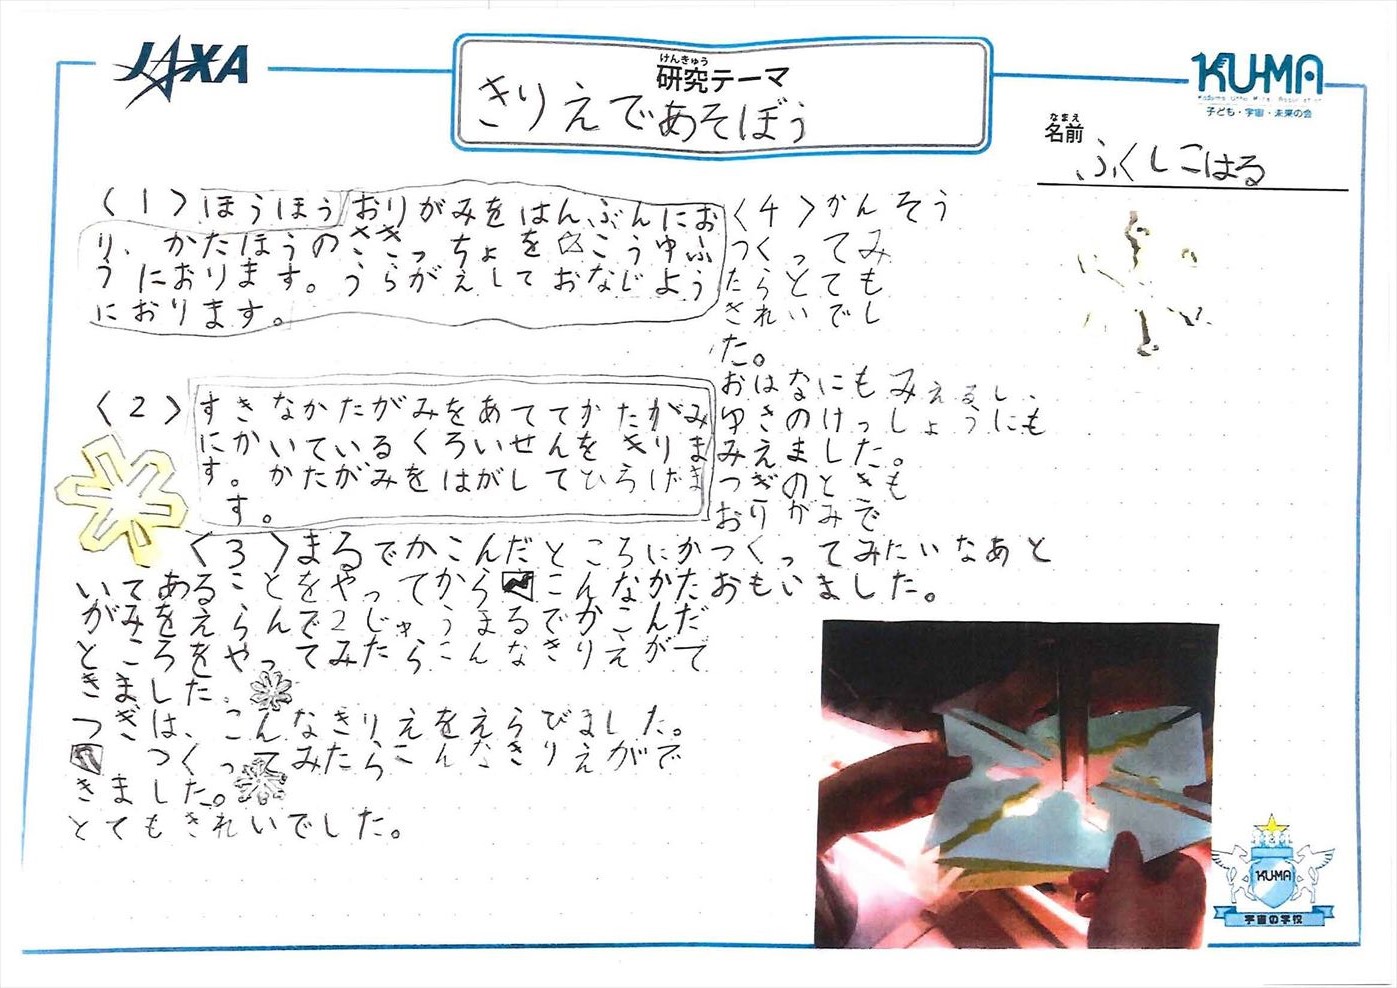 JAXA
けんきゅう
研究テーマ
きりえであそぼう
KU-MA
子ども・宇宙・未来の会
なまえ
名前
ふくしこはる
〈1〉ほうほう おりがみをはんぶんにお
り、かたほうのさきっちょをこうゆふ
うにおります。うらがえしておなじよう
におります。
〈2〉すきなかたがみをあててかたがみ
にかいているくろいせんをきりま
す。かたがみをはがしてひろげま
す。
〈3〉まるでかこんだところにか
いてあることをやってからこんなかた
がみをえらんで2じゅうまるでかこんだ
ところをやってみたらこんなきりえがで
きました。
つぎは、こんなきりえをえらびました。
つくってみたらこんなきりえがで
きました。
とてもきれいでした。
〈4〉かんそう
つくってみ
たらとても
きれいでし
た。
おはなにもみえるし、
ゆきのけっしょうにも
みえました。
つぎのときも
おりがみで
つくってみたいなあと
おもいました。
KU-MA
宇宙の学校